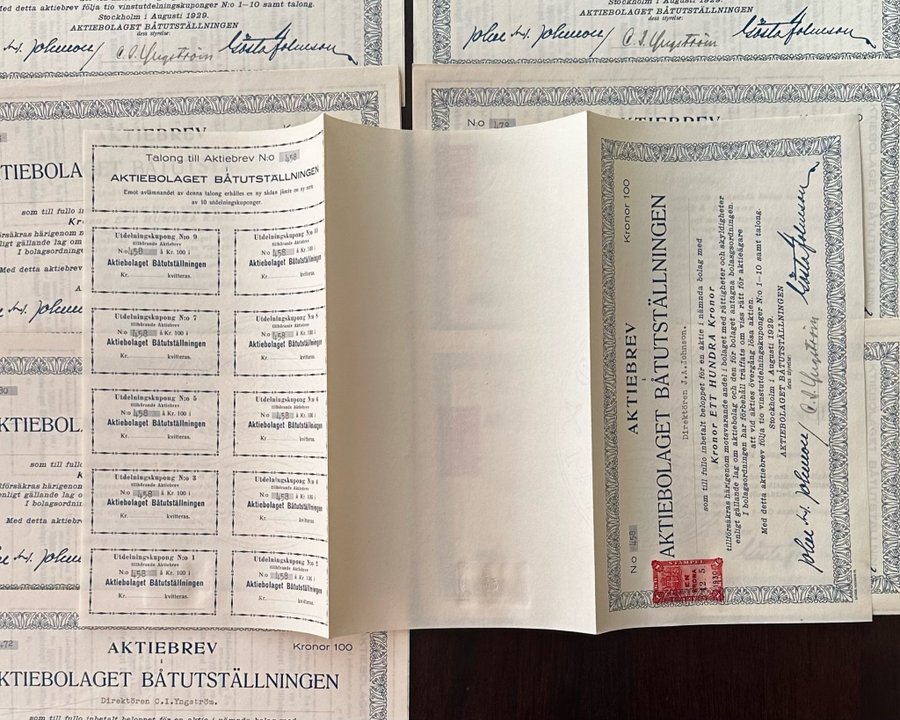 Med detta aktiebrev följa tio vinstutdelningskuponger N:o 1–10 samt talong.
Stockholm i Augusti 1929.
AKTIEBOLAGET BÅTUTSTÄLLNINGEN
dess styrelse:
C. I. Yngström
Gösta Johnson
detta aktiebrev följa tio vinstutdelningskuponger N:o 1–10 samt talong.
Stockholm i Augusti 1929.
AKTIEBOLAGET BÅTUTSTÄLLNINGEN
dess styrelse:
C. I. Yngström
Gösta Johnson
AKTIEBREV
TIEBOLA
som till fullo
Med detta aktiebrev
N:o 472
Talong till Aktiebrev N:o 458
i
AKTIEBOLAGET BÅTUTSTÄLLNINGEN
Emot avlämnandet av denna talong erhålles en ny sådan jämte en ny serie
av 10 utdelningskuponger.
Utdelningskupong N:o 9
tillhörande Aktiebrev
N:o 458 å Kr. 100 i
Aktiebolaget Båtutställningen
Kr. kvitteras.
Utdelningskupong N:o 10
tillhörande Aktiebrev
N:o 458 å Kr. 100 i
Aktiebolaget Båtutställningen
Kr. kvitteras.
Utdelningskupong N:o 7
tillhörande Aktiebrev
N:o 458 å Kr. 100 i
Aktiebolaget Båtutställningen
Kr. kvitteras.
Utdelningskupong N:o 8
tillhörande Aktiebrev
N:o 458 å Kr. 100 i
Aktiebolaget Båtutställningen
Kr. kvitteras.
Utdelningskupong N:o 5
tillhörande Aktiebrev
N:o 458 å Kr. 100 i
Aktiebolaget Båtutställningen
Kr. kvitteras.
Utdelningskupong N:o 6
tillhörande Aktiebrev
N:o 458 å Kr. 100 i
Aktiebolaget Båtutställningen
Kr. kvitteras.
Utdelningskupong N:o 3
tillhörande Aktiebrev
N:o 458 å Kr. 100 i
Aktiebolaget Båtutställningen
Kr. kvitteras.
Utdelningskupong N:o 4
tillhörande Aktiebrev
N:o 458 å Kr. 100 i
Aktiebolaget Båtutställningen
Kr. kvitteras.
Utdelningskupong N:o 1
tillhörande Aktiebrev
N:o 458 å Kr. 100 i
Aktiebolaget Båtutställningen
Kr. kvitteras.
Utdelningskupong N:o 2
tillhörande Aktiebrev
N:o 458 å Kr. 100 i
Aktiebolaget Båtutställningen
Kr. kvitteras.
N:o 458
Kronor 100
AKTIEBREV
i
AKTIEBOLAGET BÅTUTSTÄLLNINGEN
Direktören J.A.Johnson.
som till fullo inbetalt beloppet för en aktie i nämnda bolag med
Kronor ETT HUNDRA Kronor
tillförsäkras härigenom motsvarande andel i bolaget med rättigheter och skyldigheter
enligt gällande lag om aktiebolag och den för bolaget antagna bolagsordningen.
I bolagsordningen har förbehåll träffats om viss rätt för aktieägare
att vid akties övergång lösa aktien.
Med detta aktiebrev följa tio vinstutdelningskuponger N:o 1–10 samt talong.
Stockholm i Augusti 1929.
AKTIEBOLAGET BÅTUTSTÄLLNINGEN
dess styrelse:
C. I. Yngström
Gösta Johnson
STÄMPEL
EN
KRONA
AKTIEBREV
i
Kronor 100
AKTIEBOLAGET BÅTUTSTÄLLNINGEN
Direktören C.I.Yngström.
som till fullo inbetalt beloppet för en aktie i nämnda bolag med